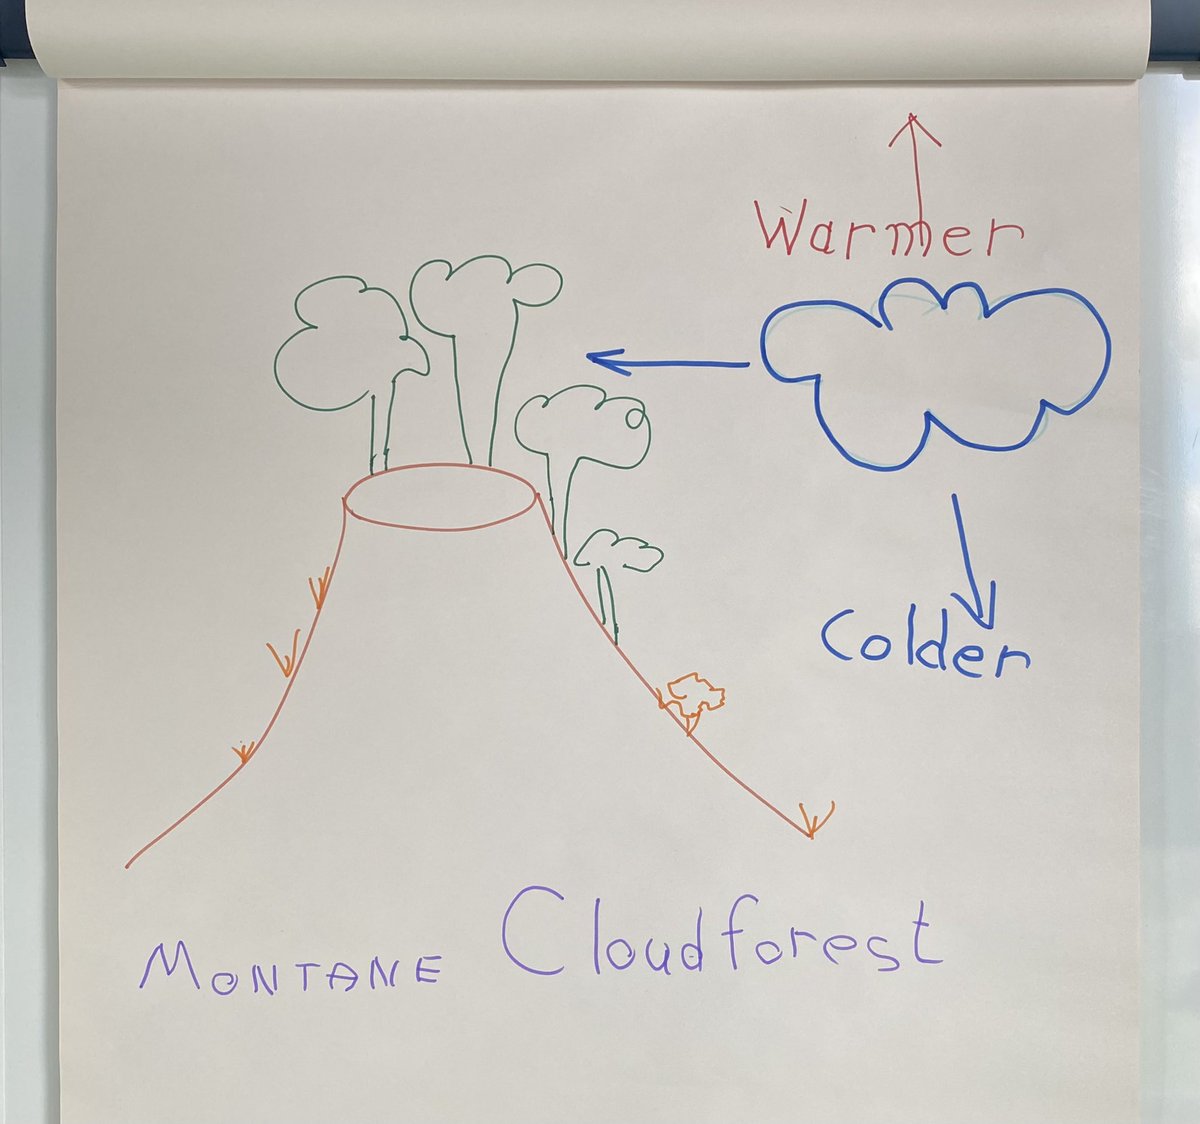 Warmer
Colder
MONTANE Cloudforest